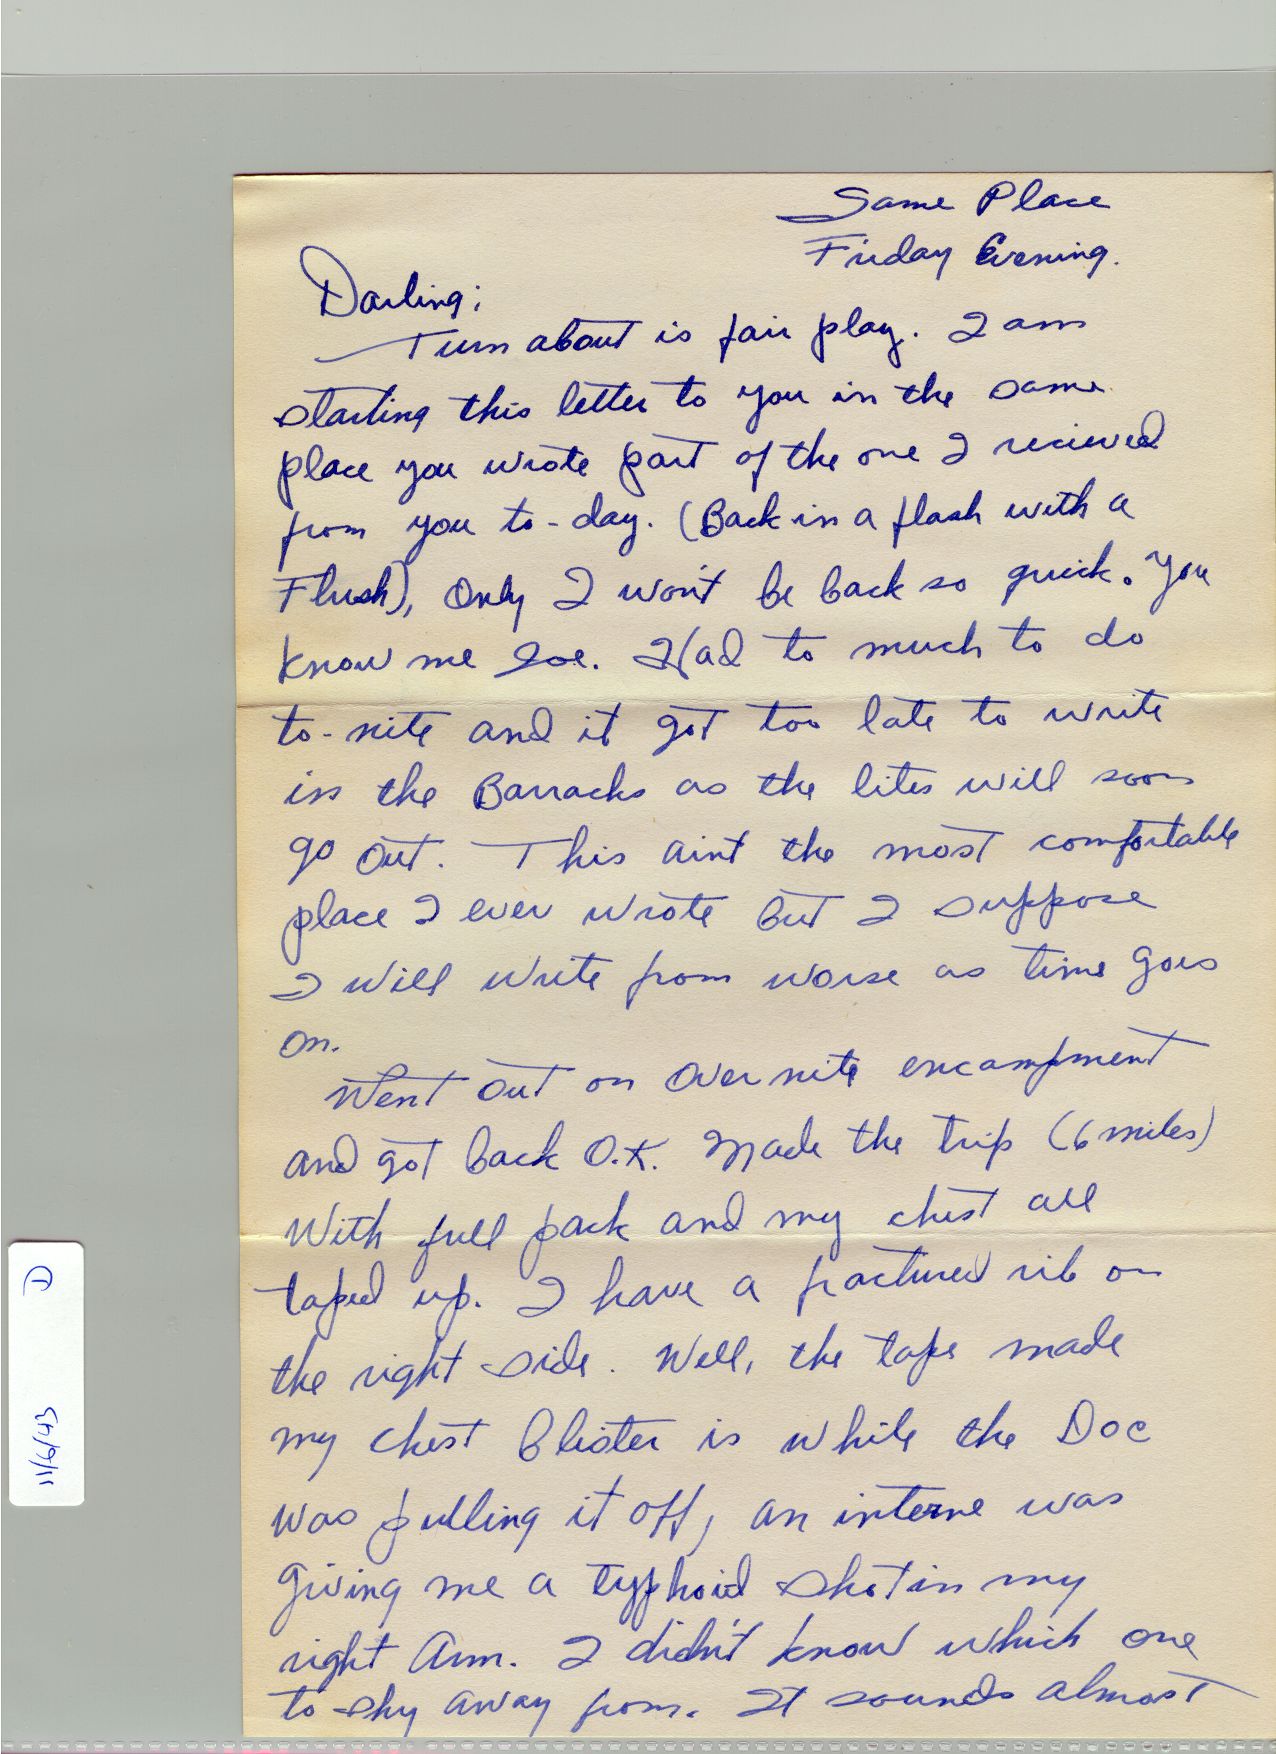 Same Place
Friday Evening.
Darling;
Turn about is fair play. I am
starting this letter to you in the same
place you wrote part of the one I recieved
from you to-day. (Back in a flash with a
Flush), Only I won't be back so quick. You
know me Joe. Had to much to do
to-nite and it got too late to write
in the Barracks as the lites will soon
go out. This aint the most comfortable
place I ever wrote but I suppose
I will write from worse as time goes
on.
Went out on over nite encampment
and got back O.K. Made the trip (6 miles)
With full pack and my chest all
taped up. I have a fractured rib on
the right side. Well, the tape made
my chest Blister is while the Doc
was pulling it off, an interne was
giving me a typhoid shot in my
right Arm. I didn't know which one
to shy away from. It sounds almost
D
11/6/43